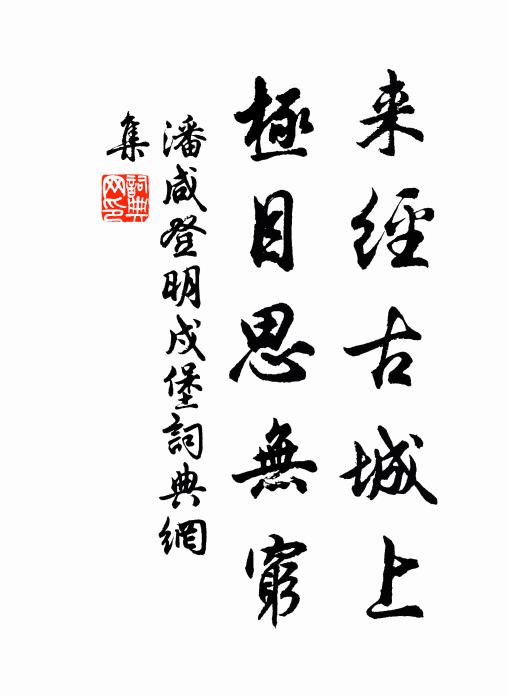 来經古城上
極目思無窮
潘咸登明戍堡詞典網
集
詞典
网印